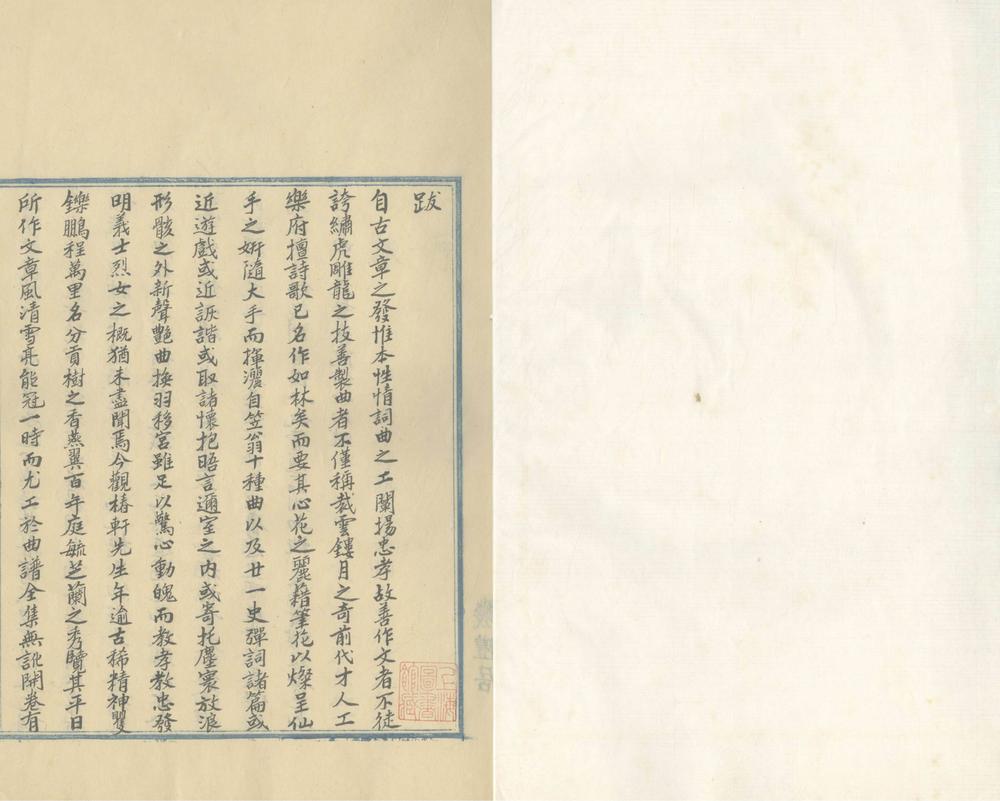 跋
自古文章之發惟本性情詞曲之工闡揚忠孝故善作文者不徒
誇繡虎雕龍之技善製曲者不僅稱裁雲鏤月之奇前代才人工
樂府擅詩歌已名作如林矣而要其心花之麗藉筆花以燦呈仙
手之妍隨大手而揮灑自笠翁十種曲以及廿一史彈詞諸篇或
近遊戲或近詼諧或取諸懷抱晤言邇室之内或寄托塵寰放浪
形骸之外新聲艷曲換羽移宮雖足以驚心動魄而教孝教忠發
明義士烈女之概猶未盡聞焉今觀椿軒先生年逾古稀精神矍
鑠鵬程萬里名分貢樹之香燕翼百年庭毓芝蘭之秀牘其平日
所作文章風清雪亮能冠一時而尤工於曲譜全集無訛開卷有